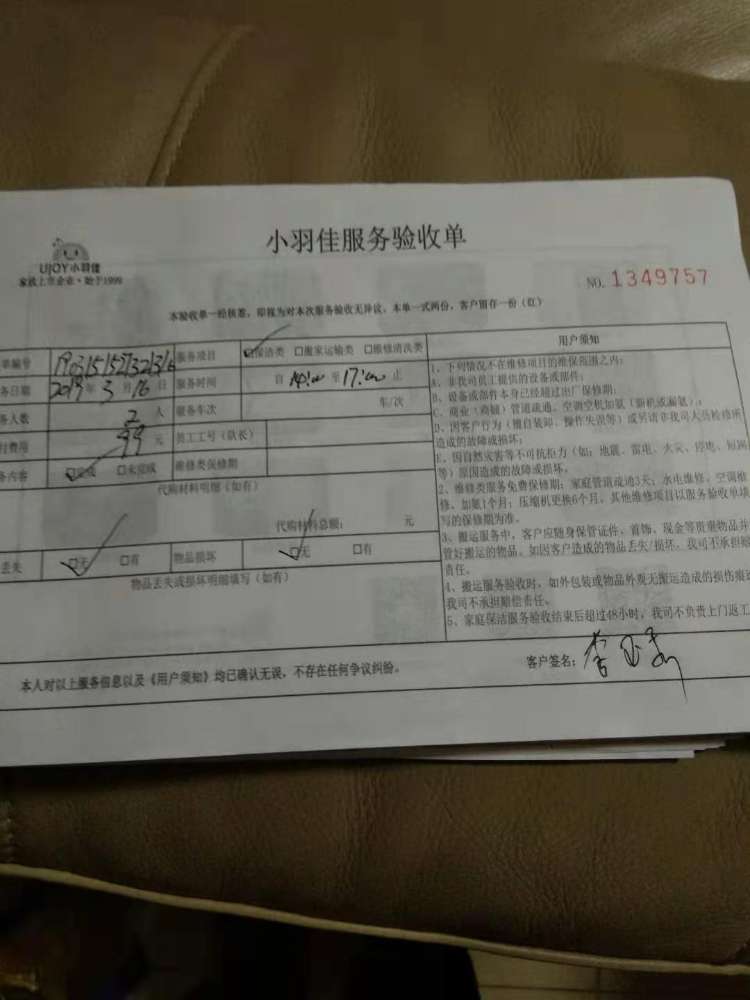 小羽佳服务验收单
UJOY小羽佳
家政上市企业·始于1999
NO. 1349757
本验收单一经核签,即视为对本次服务验收无异议。本单一式两份,客户留存一份(红)
单编号 服务项目 保洁类 □搬家运输类 □维修清洗类
务日期 2019年3月16日 服务时间 自 14:00 至 17:00 止
务人数 2 人 服务车次 车/次
付费用 99 元 员工工号(队长)
务内容 □完成 □未完成 维修类保修期
代购材料明细(如有)
代购材料总额: 元
丢失 □无 □有 物品损坏 □无 □有
物品丢失或损坏明细填写(如有)
用户须知
1、下列情况不在维修项目的维保范围之内:
A、非我司员工提供的设备或部件;
B、设备或部件本身已经超过出厂保修期;
C、商业(商铺)管道疏通、空调空机加氨(新机或漏氨);
D、因客户行为(擅自装卸、操作失误等)或另请非我司人员检修所
造成的故障或损坏;
E、因自然灾害等不可抗拒力(如:地震、雷电、火灾、停电、短路
等)原因造成的故障或损坏。
2、维修类服务免费保修期:家庭管道疏通3天;水电维修、空调维
修、加氨1个月;压缩机更换6个月。其他维修项目以服务验收单填
写的保修期为准。
3、搬运服务中,客户应随身保管证件、首饰、现金等贵重物品并
管好搬运的物品。如因客户造成的物品丢失/损坏,我司不承担赔
责任。
4、搬运服务验收时,如外包装或物品外观无搬运造成的损伤痕迹
我司不承担赔偿责任。
5、家庭保洁服务验收结束后超过48小时,我司不负责上门返工
本人对以上服务信息以及《用户须知》均已确认无误,不存在任何争议纠纷。
客户签名: